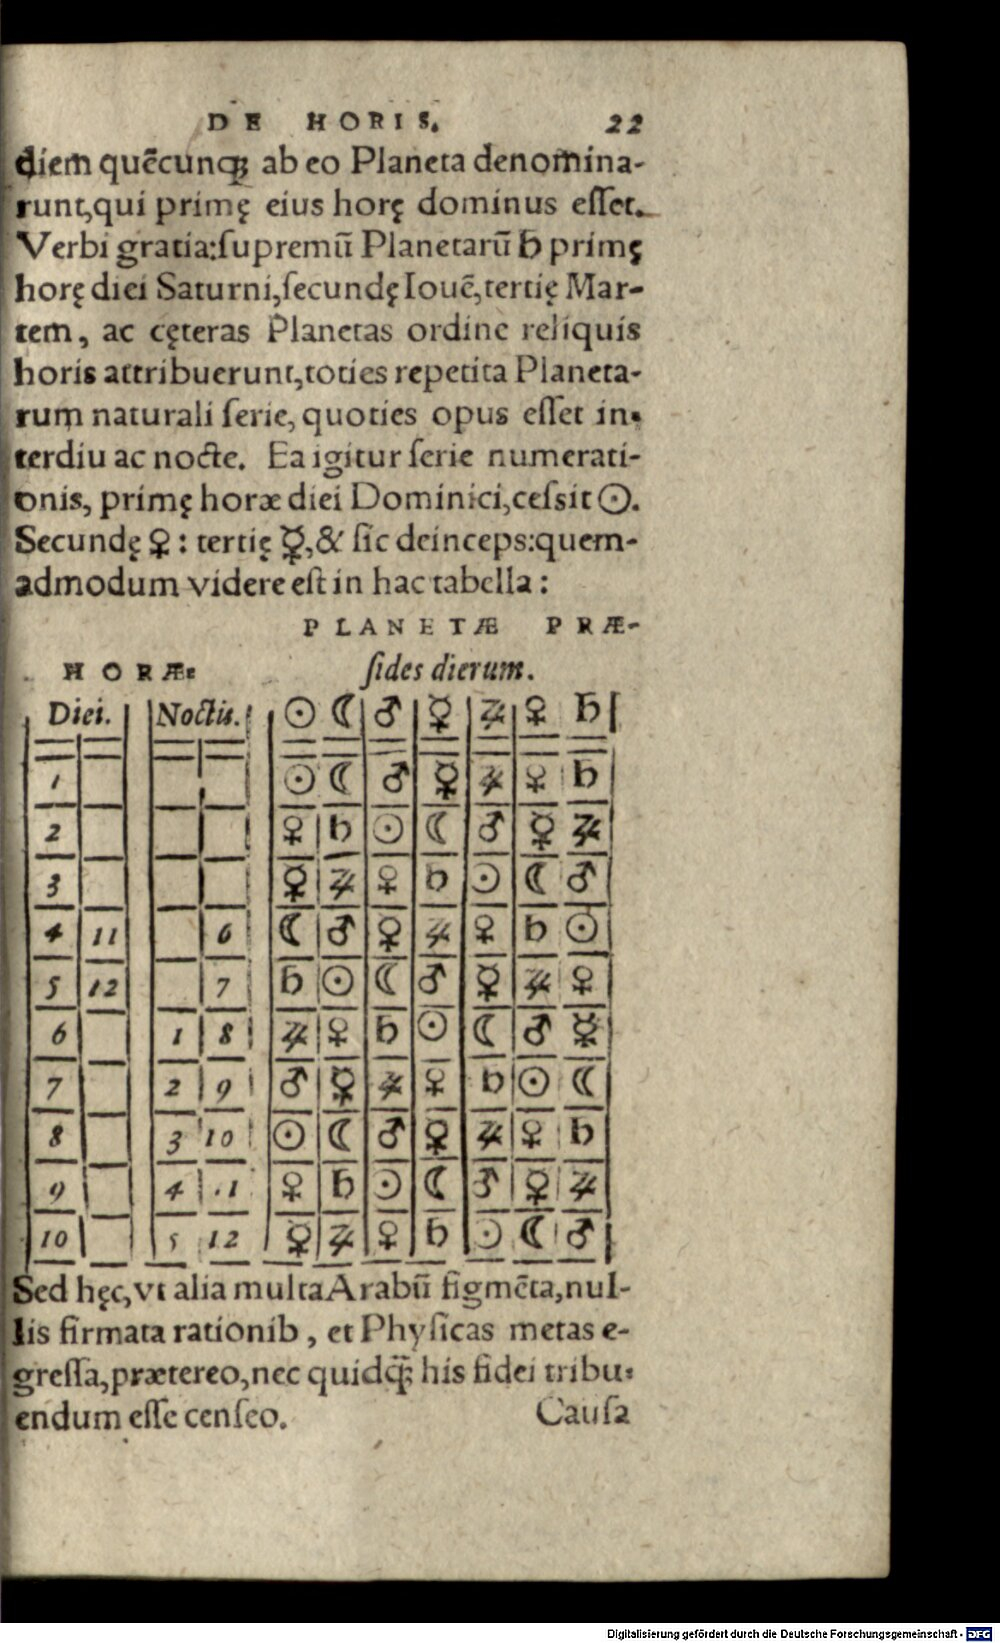 DE HORIS. 22
diem quẽcunqꝫ ab eo Planeta denomina-
runt,qui primę eius horę dominus eſſet.
Verbi gratia:ſupremũ Planetarũ ♄ primę
horę diei Saturni,ſecundę Iouẽ,tertię Mar-
tem, ac cęteras Planetas ordine reliquis
horis attribuerunt,toties repetita Planeta-
rum naturali ſerie, quoties opus eſſet in-
terdiu ac nocte. Ea igitur ſerie numerati-
onis, primę horæ diei Dominici,ceſsit ☉.
Secundę ♀: tertię ☿,& ſic deinceps:quem-
admodum videre eſt in hac tabella:
PLANETÆ PRÆ-
HORÆ: ſides dierum.
Diei. Noctis. ☉ ☾ ♂ ☿ ♃ ♀ ♄
1 ☉ ☾ ♂ ☿ ♃ ♀ ♄
2 ♀ ♄ ☉ ☾ ♂ ☿ ♃
3 ☿ ♃ ♀ ♄ ☉ ☾ ♂
4 11 6 ☾ ♂ ☿ ♃ ♀ ♄ ☉
5 12 7 ♄ ☉ ☾ ♂ ☿ ♃ ♀
6 1 8 ♃ ♀ ♄ ☉ ☾ ♂ ☿
7 2 9 ♂ ☿ ♃ ♀ ♄ ☉ ☾
8 3 10 ☉ ☾ ♂ ☿ ♃ ♀ ♄
9 4 .1 ♀ ♄ ☉ ☾ ♂ ☿ ♃
10 5 12 ☿ ♃ ♀ ♄ ☉ ☾ ♂
Sed hęc,vt alia multa Arabũ figmẽta,nul-
lis firmata rationib, et Phyſicas metas e-
greſſa,prætereo,nec quidq̃; his fidei tribu-
endum eſſe cenſeo. Cauſa
Digitalisierung gefördert durch die Deutsche Forschungsgemeinschaft - DFG